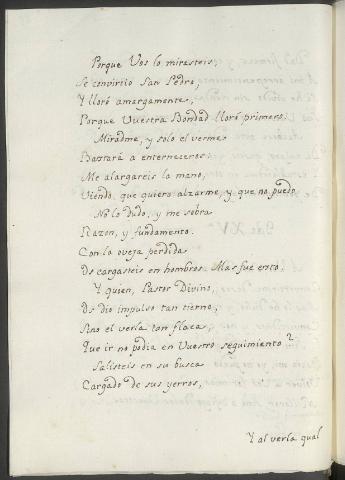 Porque Vos lo mirasteis,
Se convirtió San Pedro,
Y lloró amargamente,
Porque Vuestra Bondad lloró primero.
Miradme, y solo el verme
Bastará a enterneceros
Me alargareis la mano,
Viendo, que quiero alzarme, y que no puedo.
No lo dudo, y me sobra
Razon, y fundamento.
Con la oveja perdida
Os cargasteis en hombros. Mas fue esto.
Y quien, Pastor Divino,
Os dio impulso tan tierno,
Sino el verla tan flaca,
Que ir no podia en Vuestro seguimiento?
Salisteis en su busca
Cargado de sus yerros,
Y al verla qual